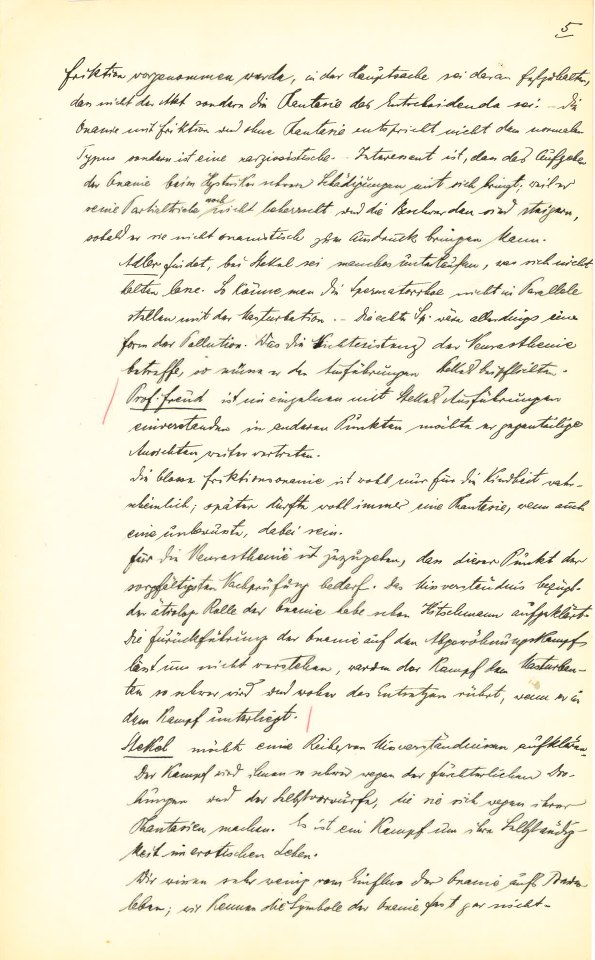 5
friktion vorgenommen werde, in der Hauptsache sei daran festzuhalten,
das nicht der Akt sondern die Fantasie das Entscheidende sei. – Die
Onanie mit friktion und ohne Fantasie entspricht nicht dem normalen
Typus sondern ist eine narzissistische. – Interessant ist, dass das Aufgeben
der Onanie beim Hysteriker schwere Schädigungen mit sich bringt; weil er
seine Partialtriebe noch nicht beherrscht und die Beschwerden sind steigern,
sobald er sie nicht onanistisch zum Ausdruck bringen kann.
Adler findet, bei Stekel sei manches unterlaufen, was sich nicht
halten lasse. So könne man die Spermatorrhoe nicht in Parallele
stellen mit der Masturbation. – Die echte Sp. wäre allerdings eine
form der Pollution. Was die Nichtexistenz der Neurasthenie
betreffe, so müsse er den Ausführungen Stekels beipflichten.
Prof. freud ist im einzelnen mit Stekels Ausführungen
einverstanden in anderen Punkten möchte er gegenteilige
Ansichten weiter vertreten.
Die blosse friktionsonanie ist wohl nur für die Kindheit wahr-
scheinlich; später dürfte wohl immer eine Fantasie, wenn auch
eine unbewusste, dabei sein.
für die Neurasthenie ist zuzugeben, das dieser Punkt der
sorgfältigsten Nachprüfung bedarf. Das Misverständnis bezügl.
der ätiolog. Rolle der Onanie habe schon Hitschmann aufgeklärt.
Die Zurückführung der Onanie auf den Abgewöhnungskampf
lässt uns nicht verstehen, warum der Kampf dem Masturban-
ten so schwer wird und woher das Entsetzen rührt, wenn er in
dem Kampf unterliegt.
Stekel möchte eine Reihe von Misverständnissen aufklären.
Der Kampf wird ihnen so schwer wegen der fürchterlichen Dro-
hungen und der Selbstvorwürfe, die sie sich wegen ihrer
Fantasien machen. Es ist ein Kampf um ihre Selbständig-
keit im erotischen Leben.
Wir wissen sehr wenig vom Einfluss der Onanie aufs
leben; wir kennen die Symbole der Onanie fast gar nicht. –